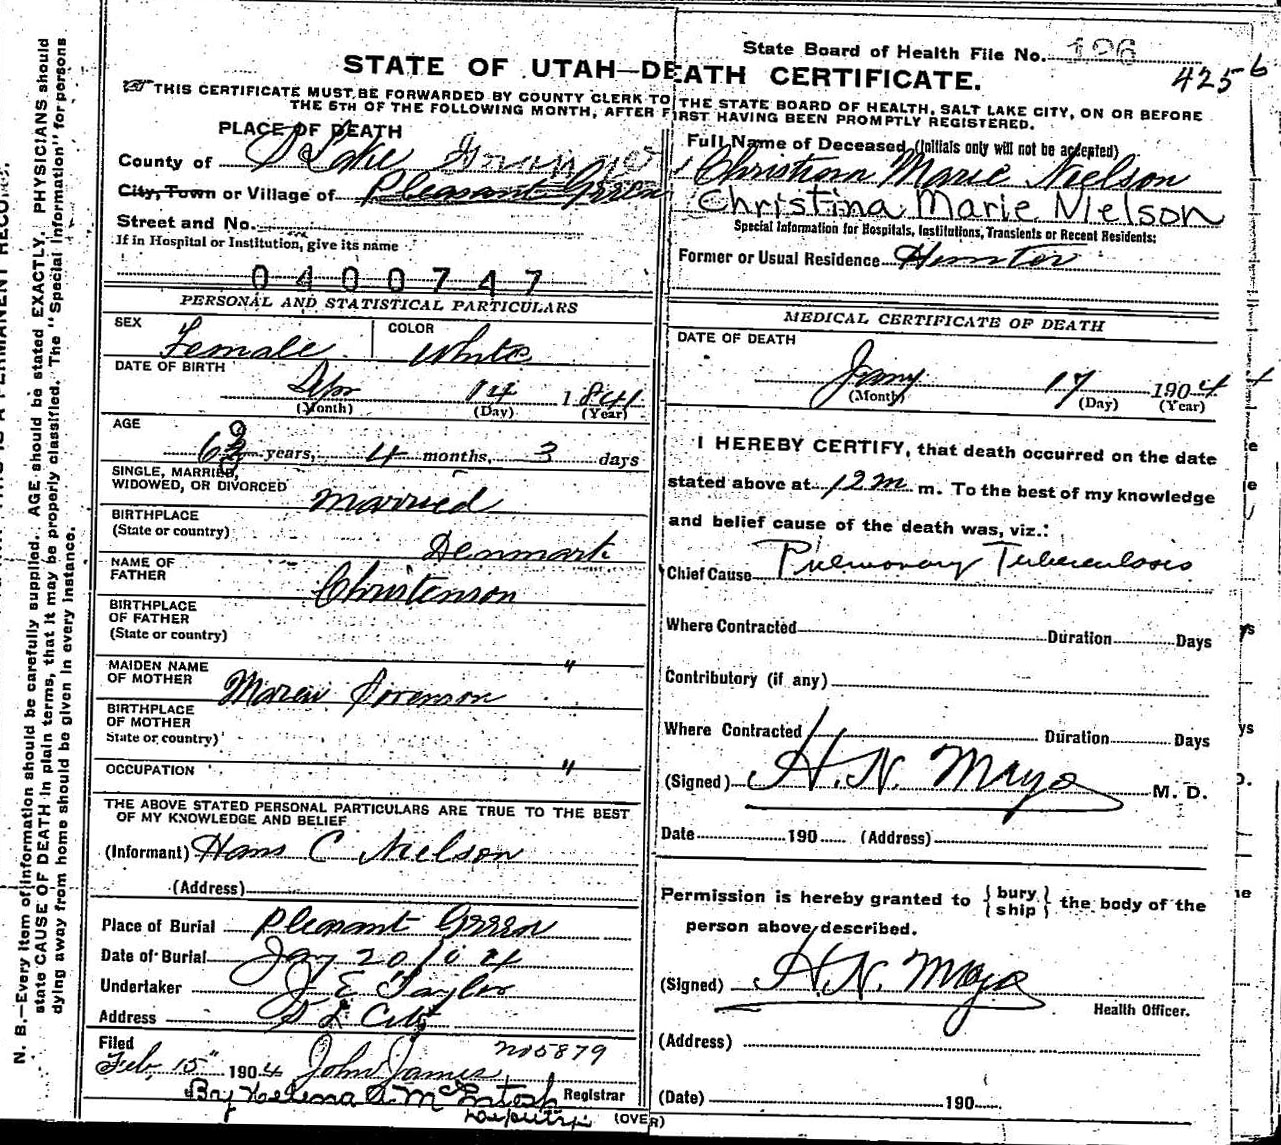 State Board of Health File No. 196
4256
STATE OF UTAH—DEATH CERTIFICATE.
THIS CERTIFICATE MUST BE FORWARDED BY COUNTY CLERK TO THE STATE BOARD OF HEALTH, SALT LAKE CITY, ON OR BEFORE
THE 5TH OF THE FOLLOWING MONTH, AFTER FIRST HAVING BEEN PROMPTLY REGISTERED.
PLACE OF DEATH
County of S Lake Granger
City, Town or Village of Pleasant Green
Street and No.
If in Hospital or Institution, give its name
0400747
PERSONAL AND STATISTICAL PARTICULARS
SEX Female COLOR White
DATE OF BIRTH
Sep 14 1841
(Month) (Day) (Year)
AGE
62 years, 4 months, 3 days
SINGLE, MARRIED,
WIDOWED, OR DIVORCED Married
BIRTHPLACE
(State or country) Denmark
NAME OF
FATHER Christenson
BIRTHPLACE
OF FATHER
(State or country)
MAIDEN NAME "
OF MOTHER Maren Sorenson
BIRTHPLACE
OF MOTHER
State or country)
OCCUPATION "
THE ABOVE STATED PERSONAL PARTICULARS ARE TRUE TO THE BEST
OF MY KNOWLEDGE AND BELIEF
(Informant) Hans C Nielson
(Address)
Place of Burial Pleasant Green
Date of Burial Jany 20 104
Undertaker J E Taylor
Address S L City
Filed no 5879
Feb, 15" 1904 John James
Registrar
By Helena A McEntosh
Deputy
(OVER)
Full Name of Deceased (Initials only will not be accepted)
Christian Marie Nielson
Christina Marie Nielson
Special Information for Hospitals, Institutions, Transients or Recent Residents:
Former or Usual Residence Hunter
MEDICAL CERTIFICATE OF DEATH
DATE OF DEATH
Jany 17 1904
(Month) (Day) (Year)
I HEREBY CERTIFY, that death occurred on the date
stated above at 12 m m. To the best of my knowledge
and belief cause of the death was, viz.:
Chief Cause Pulmonary Tuberculosis
Where Contracted Duration Days
Contributory (if any)
Where Contracted Duration Days
(Signed) H. N. Mayo M. D.
Date 190 (Address)
Permission is hereby granted to {bury/ship} the body of the
person above described.
(Signed) H. N. Mayo
Health Officer.
(Address)
(Date) 190
N. B.—Every item of information should be carefully supplied. AGE should be stated EXACTLY. PHYSICIANS should
state CAUSE OF DEATH in plain terms, that it may be properly classified. The "Special Information" for persons
dying away from home should be given in every instance.